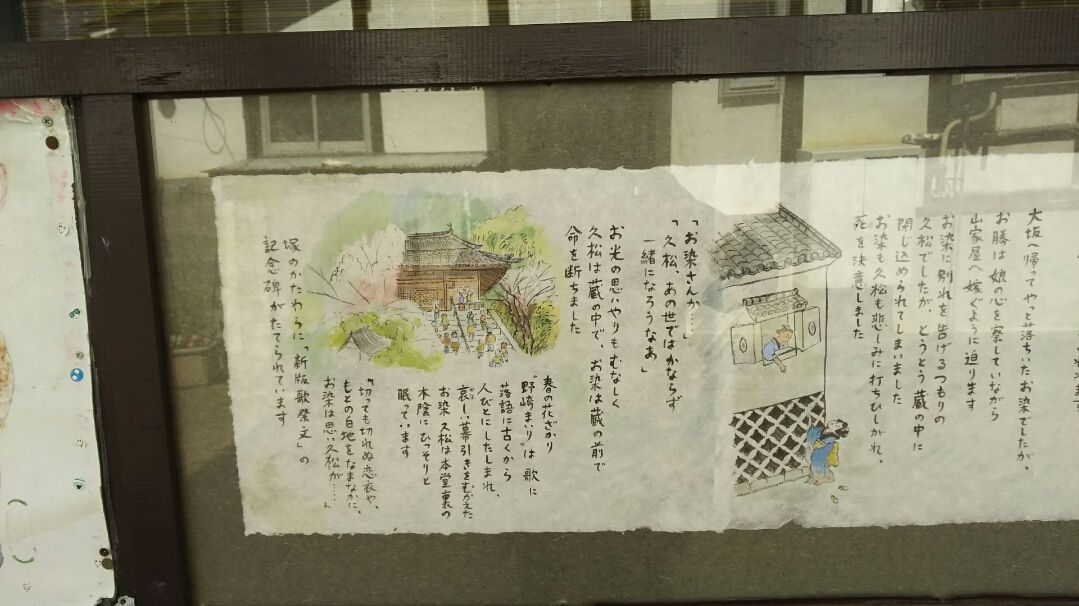 大坂へ帰ってやっと落ちいたお染でしたが、
お勝は娘の心を察していながら
山家屋へ嫁ぐように迫ります
お染に別れを告げるつもりの
久松でしたが、とうとう蔵の中に
閉じ込められてしまいました
お染も久松も悲しみに打ちひしがれ、
死を決意しました
「お染さんか……」
「久松、あの世ではかならず
一緒になろうなあ」
お光の思いやりもむなしく
久松は蔵の中で、お染は蔵の前で
命を断ちました
春の花ざかり
“野崎まいり”は歌に
落語に古くから
人びとにしたしまれ、
哀しい幕引きをむかえた
お染久松は本堂裏の
木陰にひっそりと
眠っています
「切っても切れぬ恋衣や、
もとの白地をなまなかに、
お染は思い久松が……」
塚のかたわらに「新版歌祭文」の
記念碑がたてられています